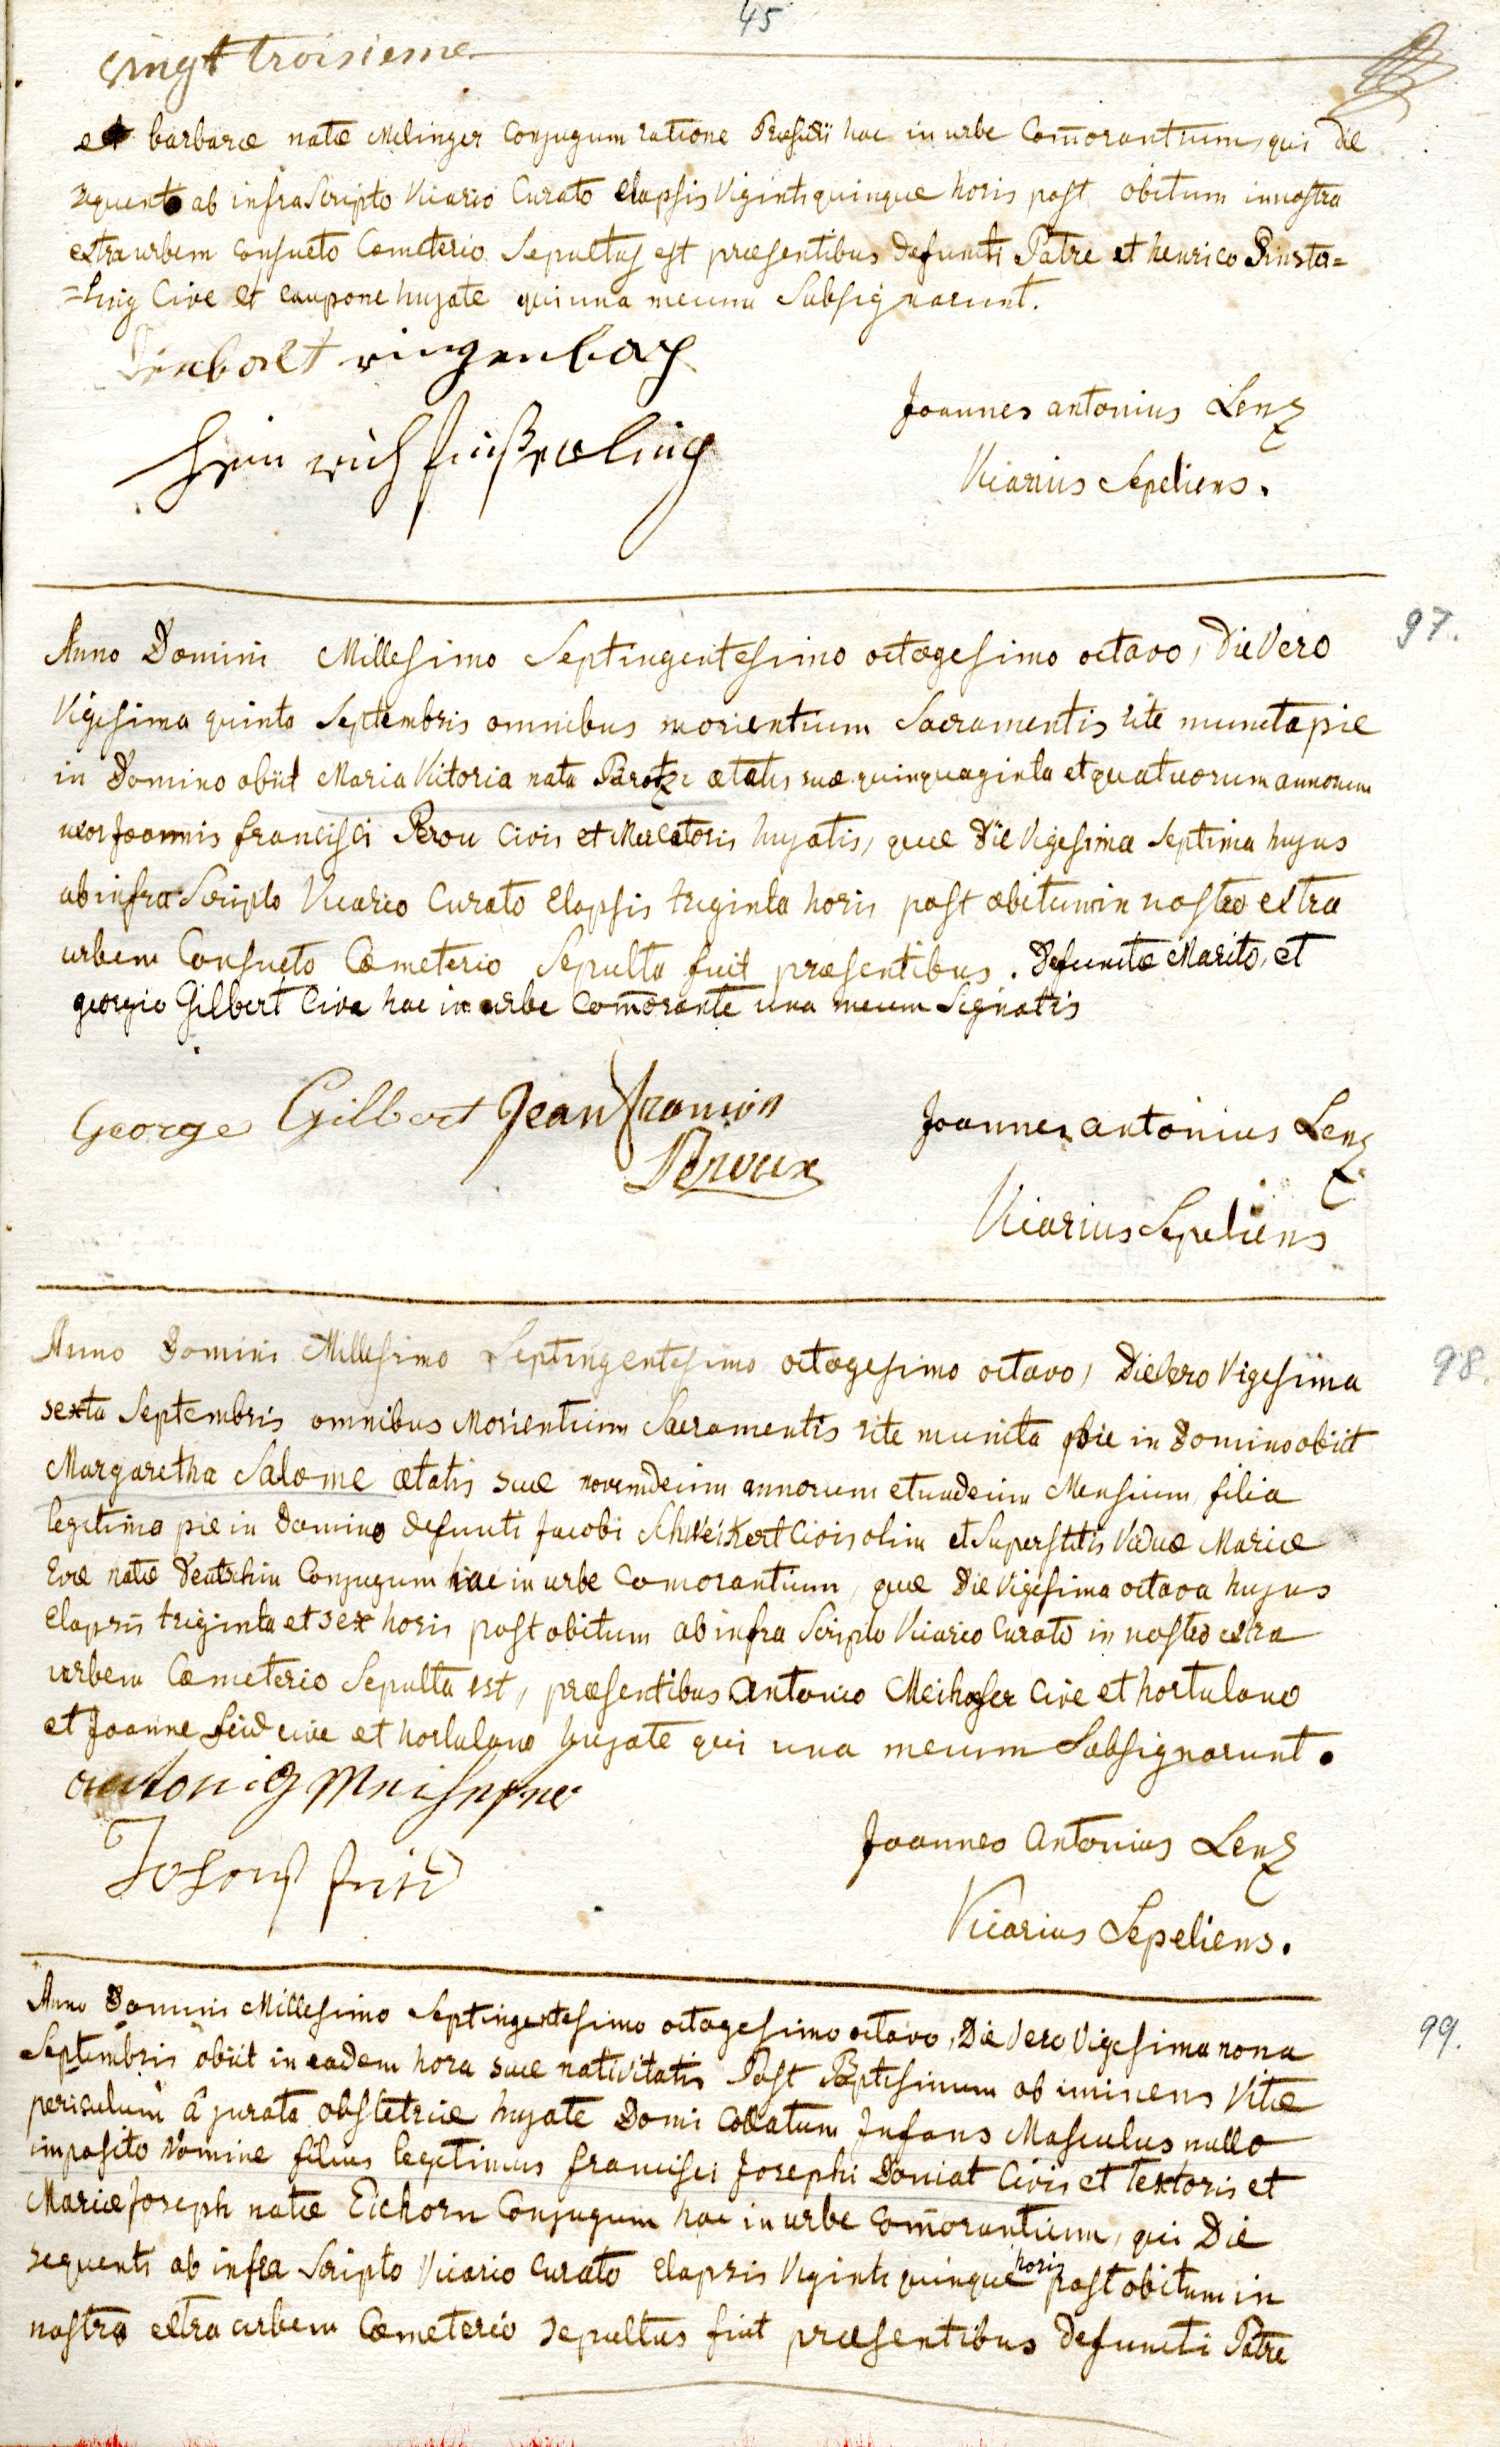 45
vingt troisieme
et barbaræ natæ Melinger Conjugum ratione Præsidii hac in urbe Com̄orantium, qui die
sequento ab infra Scripto Vicario Curato elapsis Viginti quinque horis post obitum in nostra
extra urbem Consueto Cemeterio Sepultus est præsentibus defuncti Patre et henrico
=ling Cive et caupone hujate qui una mecum Subsignarunt.
ringenbach
Joannes antonius Lenz
Heinrich
Vicarius Sepeliens.
97.
Anno Domini Millesimo Septingentesimo octogesimo octavo, Die Vero
Vigesima quinta Septembris omnibus morientium Sacramentis rite munita pie
in Domino obiit Maria Victoria nata ætatis suæ quinquaginta et quatuorum annorum
uxor Joannis francisci Perou Civis et Mercatoris hujatis, quæ Die Vigesima Septima hujus
ab infra Scripto Vicario Curato Elapsis triginta horis post obitum in nostro extra
urbem Consueto Cœmeterio Sepulta fuit præsentibus. Defunctæ Marito, et
georgio Gilbert Cive hac in urbe Com̄orante una mecum Signatis
George Gilbert Jean francois
Peroux
Joannes antonius Lenz
Vicarius Sepeliens
98.
Anno Domini Millesimo Septingentesimo octogesimo octavo, Die Vero Vigesima
sexta Septembris omnibus Morientium Sacramentis rite munita pie in Domino obiit
Margaretha Salome ætatis suæ novemdecim annorum et undecim Mensium, filia
legitima pie in Domino defuncti Jacobi Schweikert Civis olim et Superstitis Viduæ Mariæ
Evæ natæ Deutschin Conjugum hac in urbe Comorantium, quæ Die Vigesima octava hujus
Elapsis triginta et sex horis post obitum ab infra Scripto Vicario Curato in nostro extra
urbem Cœmeterio Sepulta est, præsentibus Antonio Meihofer Cive et hortulano
et Joanne feid cive et hortulano hujate qui una mecum Subsignarunt.
antoni
Joannes Antonius Lenz
Vicarius Sepeliens.
99.
Anno Domini Millesimo Septingentesimo octogesimo octavo, Die Vero Vigesima nona
Septembris obiit in eadem hora suæ nativitatis Post Baptesimum ob iminens Vitæ
periculum â jurata obstetrice hujate Domi Collatum Infans Masculus nullo
imposito Nomine filius legitimus francisci Josephi Doniat Civis et Textoris et
Mariæ Joseph natæ Eichorn Conjugum hac in urbe Com̄orantium, qui Die
sequenti ab infra Scripto Vicario Curato Elapsis Viginti quinque horis post obitum in
nostro extra urbem Cœmeterio sepultus fuit præsentibus Defuncti Patre